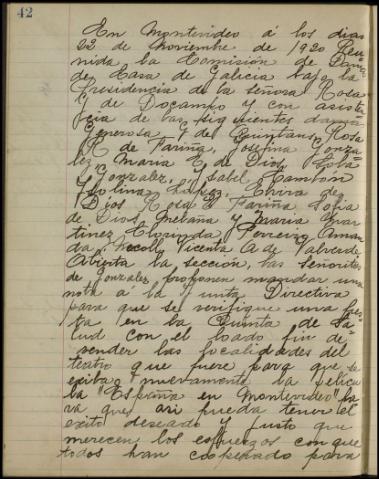 42
En Montevideo á los dias
22 de Noviembre de 1920 Reu-
nida la Comisión de Damas
de Casa de Galicia bajo la
Presidencia de la señora Rosa
de Docampo y con asis-
tencia de las siguientes damas
Generosa de Quintans, Rosa
R de Fariña, Josefina Gonza-
lez, Maria E de Dios,
Gonzalez, Isabel
Lopez, Elvira de
Dios Rosa Fariña Sofia
de Dios, y Maria Mar-
tinez Clorinda Ferreiro Aman-
da Vicenta A de Valverde
Abierta la sección, las señoritas
de Gonzalez, proponen mandar una
nota á la Junta Directiva
para que se verifique una fies-
ta en la Quinta de Sa-
lud con el loado fin de
vender las localidades del
teatro que fuere para que se
exiba nuevamente la pelicu
la "España en Montevideo" pa
ra que asi pueda tener el
exito deseado y justo que
merecen los esfuerzos con que
todos han cooperado para